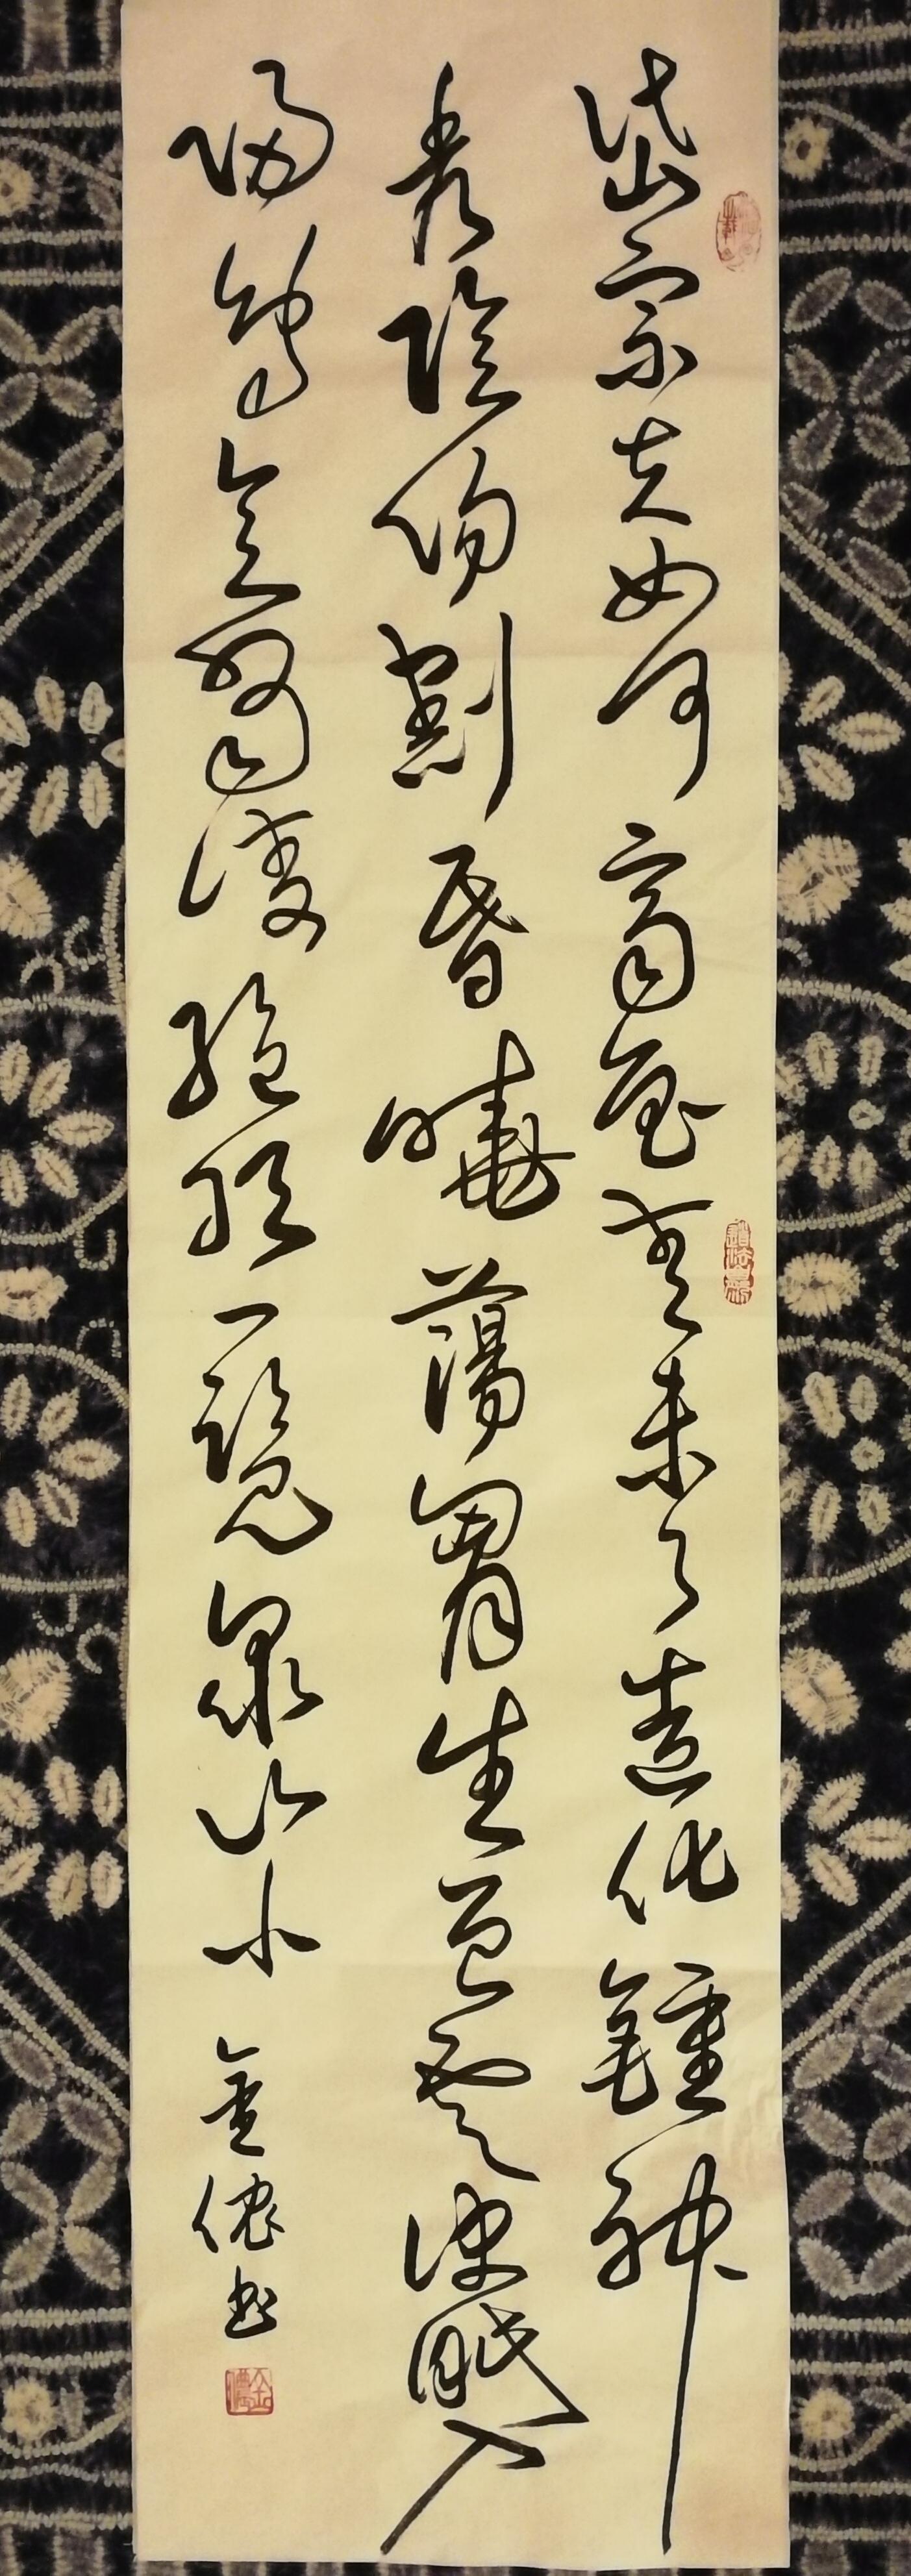 岱宗夫如何齊魯青未了造化鍾神
秀陰陽割昏曉蕩胷生曾雲決眥入
歸鳥會當凌絕頂一覽眾山小
金儂書
金儂